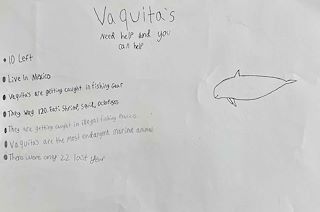 Vaquita's
Need help and you
can help
10 Left
Live In Mexico
Vaquita's are getting caught in fishing Gear
They Weg 120. Eat: Shrimp, Squid, octopuses
They are getting caught in illegal fishing
Vaquita's are the most endangent marine animal
There were only 22 last year